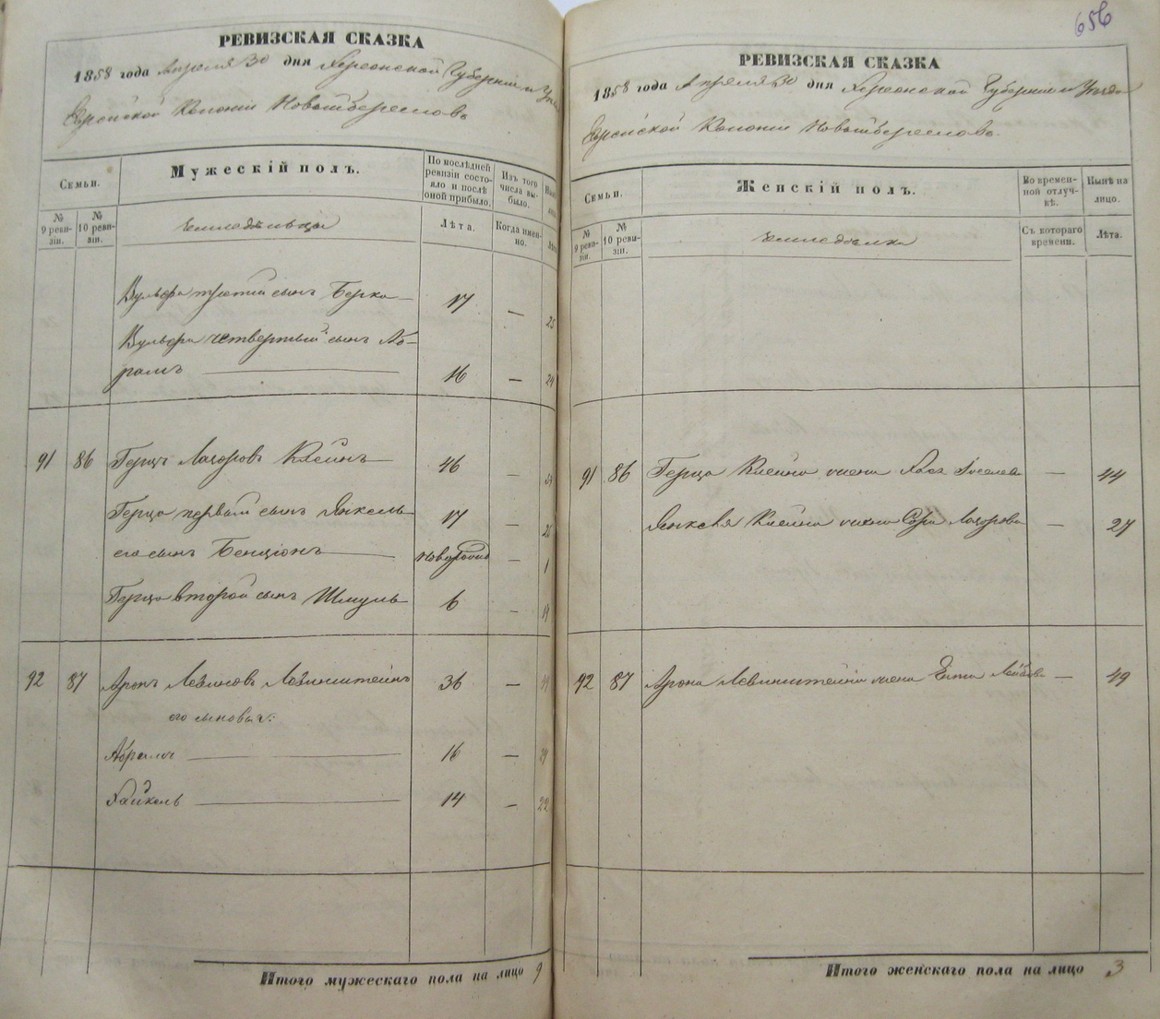 656
РЕВИЗСКАЯ СКАЗКА
1858 года Апреля 30 дня Херсонской Губернии и
Еврейской Колонии
Семьи.
Мужескій полъ.
По послѣдней ревизіи состояло и послѣ оной прибыло.
Изъ того числа выбыло.
№ 9 ревизіи.
№ 10 ревизіи.
Земледѣльцы
Лѣта.
Когда именно.
Вульфа третій сынъ Берка 17 —
Вульфа четвертый сынъ Аб-
рамъ 16 —
91 86 Герцъ Лазоровъ Клейнъ 46 —
Герца первый сынъ Янкель 17 —
его сынъ Бенціонъ — 1
Герца второй сынъ Шмуль 6 —
92 87 Аронъ Левинштейнъ 36 —
его сыновья:
Абрамъ 16 —
Хайкель 14 — 22
Итого мужескаго пола на лицо 9
РЕВИЗСКАЯ СКАЗКА
1858 года Апреля 30 дня Херсонской Губернии и Уезда
Еврейской Колонии
Семьи.
Женскій полъ.
Во временной отлучкѣ.
Нынѣ на лицо.
№ 9 ревизіи.
№ 10 ревизіи.
Съ котораго времени.
Лѣта.
91 86 Герца Клейна жена Хая — 44
Янкеля Клейна жена Сора Лазорова — 27
92 87 Арона Левинштейна жена — 49
Итого женскаго пола на лицо 3